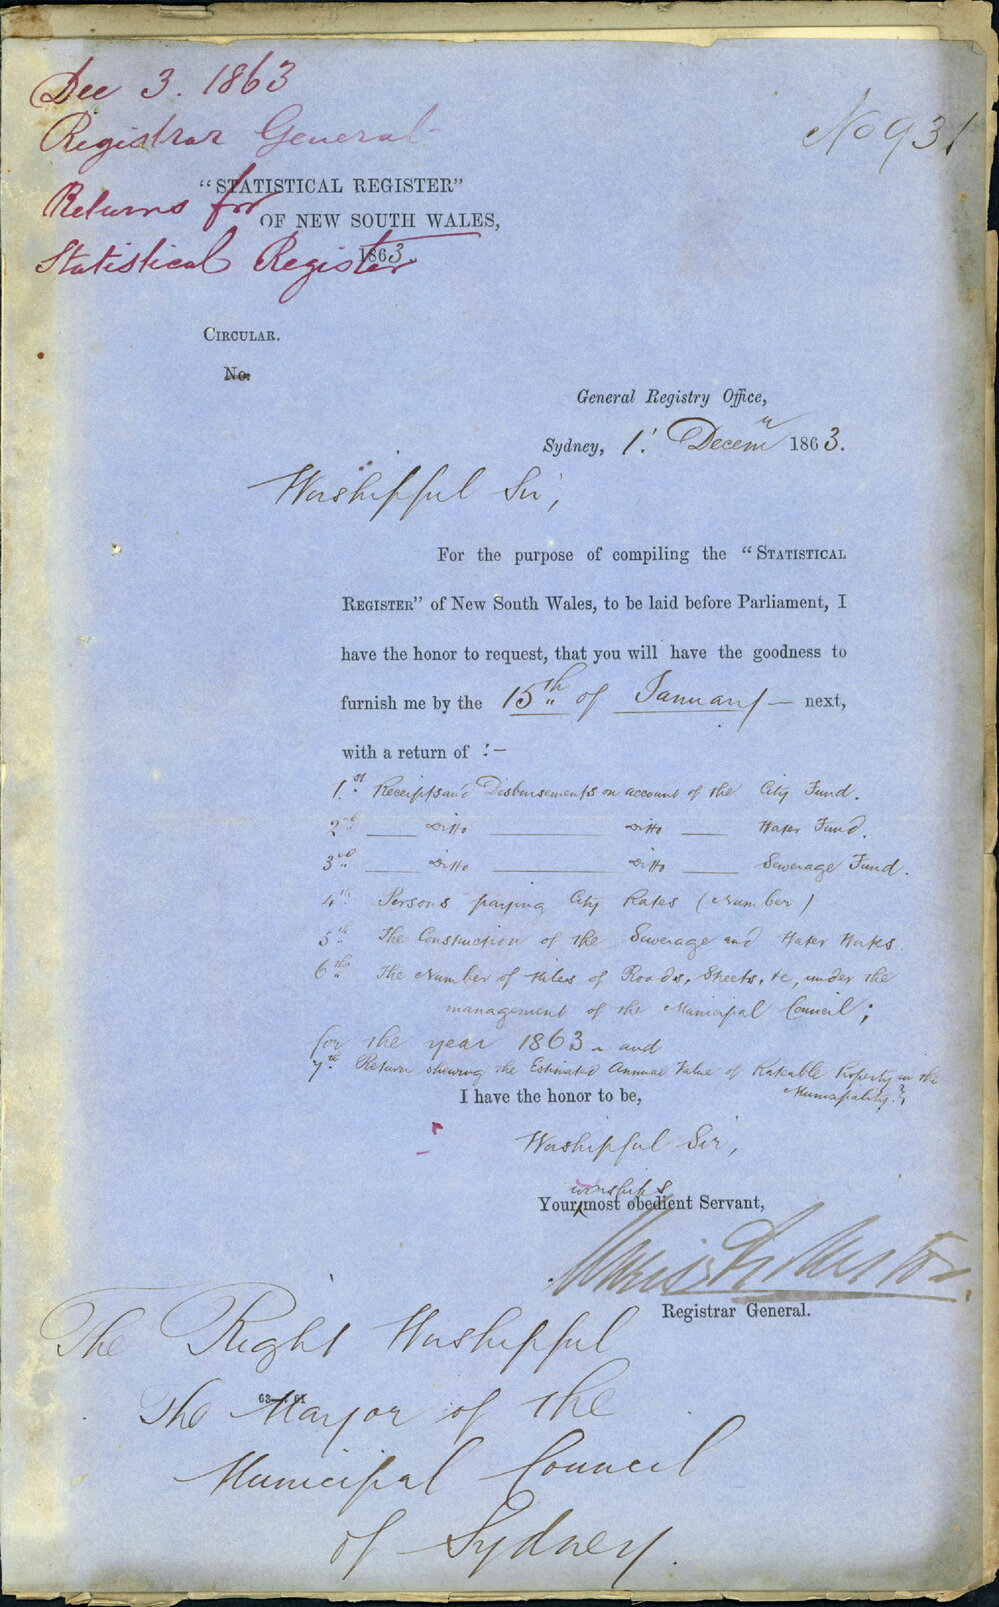 Dec 3. 1863
No 931
Registrar General
Returns for
Statistical Register
"STATISTICAL REGISTER"
OF NEW SOUTH WALES,
1863.
CIRCULAR.
No.
General Registry Office,
Sydney, 1st Decemr 1863.
Worshipful Sir,
For the purpose of compiling the "STATISTICAL
REGISTER" of New South Wales, to be laid before Parliament, I
have the honor to request, that you will have the goodness to
furnish me by the 15th of January — next,
with a return of :—
1.st Receipts and Disbursements on account of the City Fund.
2nd — Ditto — Ditto — Water Fund.
3rd — Ditto — Ditto — Sewerage Fund.
4th Persons paying City Rates (Number)
5th The Construction of the Sewerage and Water Works.
6th The Number of Miles of Roads, Streets, &c, under the
management of the Municipal Council;
for the year 1863 - and
7th Return shewing the Estimated Annual Value of Rateable Property in the
Municipality.
I have the honor to be,
Worshipful Sir,
worships
Your most obedient Servant,
Registrar General.
The Right Worshipful
63—61
The Mayor of the
Municipal Council
of Sydney.